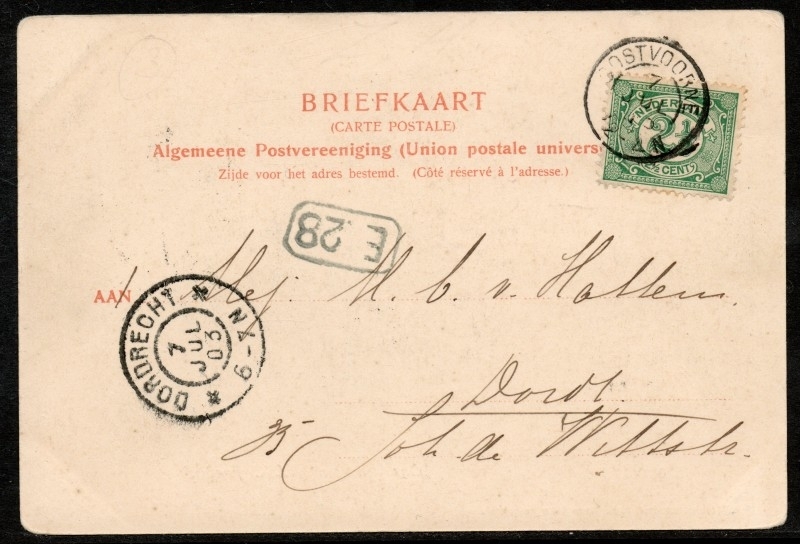 BRIEFKAART
(CARTE POSTALE)
Algemeene Postvereeniging (Union postale univers
Zijde voor het adres bestemd. (Côté réservé à l'adresse.)
OOSTVOORN
7
NEDERL
2½
CENT
F. 28
AAN Mej. M. C. v. Hattem.
DORDRECHT * N 6-9 *
7
JUL
03
Dordt.
35 Joh. de Wittstr.